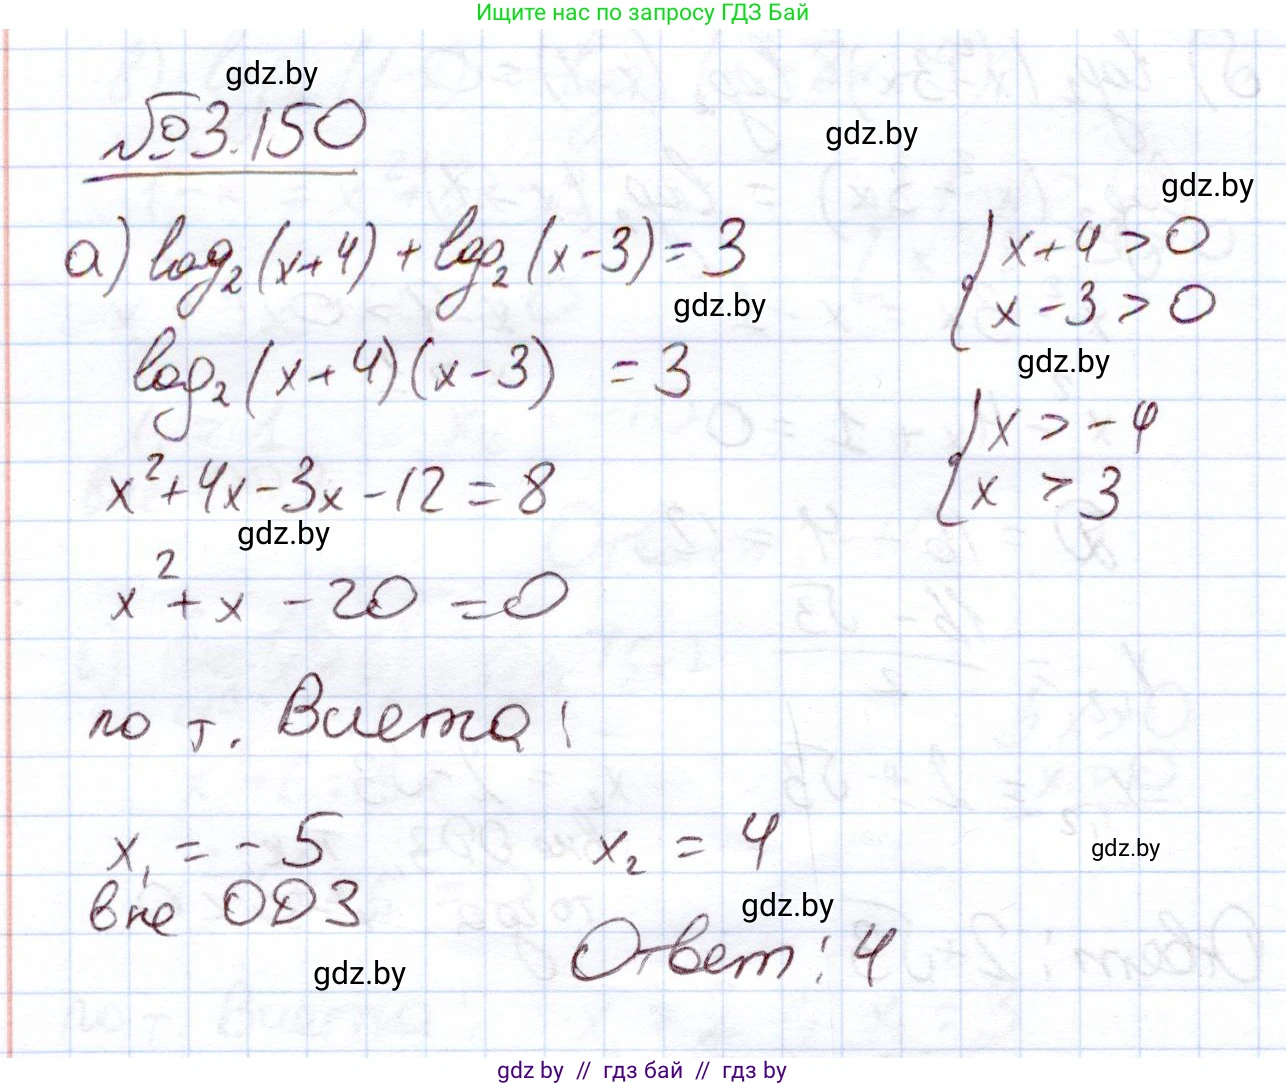 Ищите нас по запросу ГДЗ Бай
gdz.by
№3.150
gdz.by
gdz.by
а) log₂(x+4) + log₂(x-3) = 3
{ x+4 > 0
x-3 > 0
gdz.by
log₂(x+4)(x-3) = 3
gdz.by
{ x > -4
x > 3
x²+4x-3x-12 = 8
gdz.by
x²+x-20=0
по т. Виета:
x₁ = -5
x₂ = 4
gdz.by
вне ОДЗ
gdz.by
Ответ: 4
gdz.by
gdz by // гдз бай // гдз by